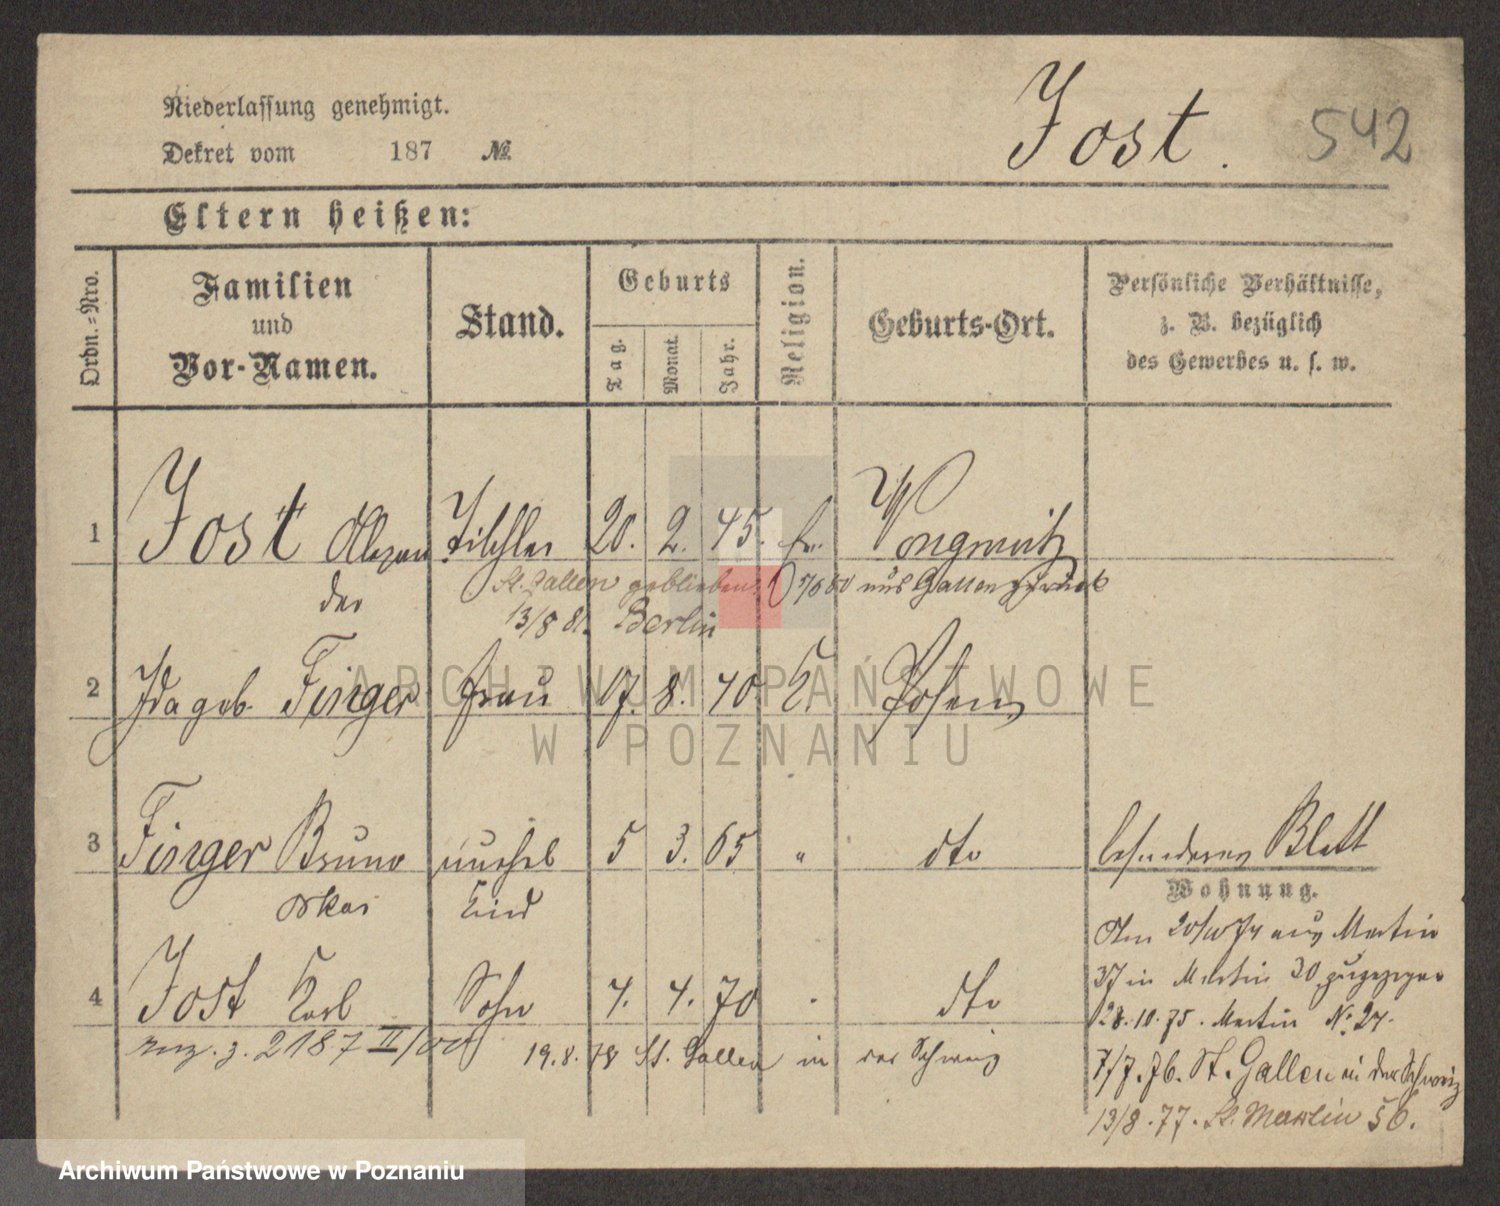 Niederlassung genehmigt.
Dekret vom 187 №
Jost. 542
Eltern heißen:
Ordn.-Nro.
Familien und Vor-Namen.
Stand.
Geburts
Tag. Monat. Jahr.
Religion.
Geburts-Ort.
Persönliche Verhältnisse,
z. B. bezüglich
des Gewerbes u. s. w.
1 Jost Alexan Tischler 20. 2. 45. Wongrowitz
der
St. Gallen geblieben aus Gallen zurück
13/8 81. Berlin
2 Ida geb. Finger Frau 17. 8. 40 K. Posen
3 Finger Bruno unehel 5 3. 65 " dto besonderes Blatt
Oskar Kind
Wohnung.
Am aus Martin
37 in Martin 30 zugezogen
4 Jost Karl Sohn 4. 4. 70 dto
28.10.75. Martin No. 27.
2187 II 19.8.78 St. Gallen in der Schweiz
7/7.76. St. Gallen in der Schweiz
13/8.77. St. Martin 56.
ARCHIWUM PAŃSTWOWE
W POZNANIU
Archiwum Państwowe w Poznaniu